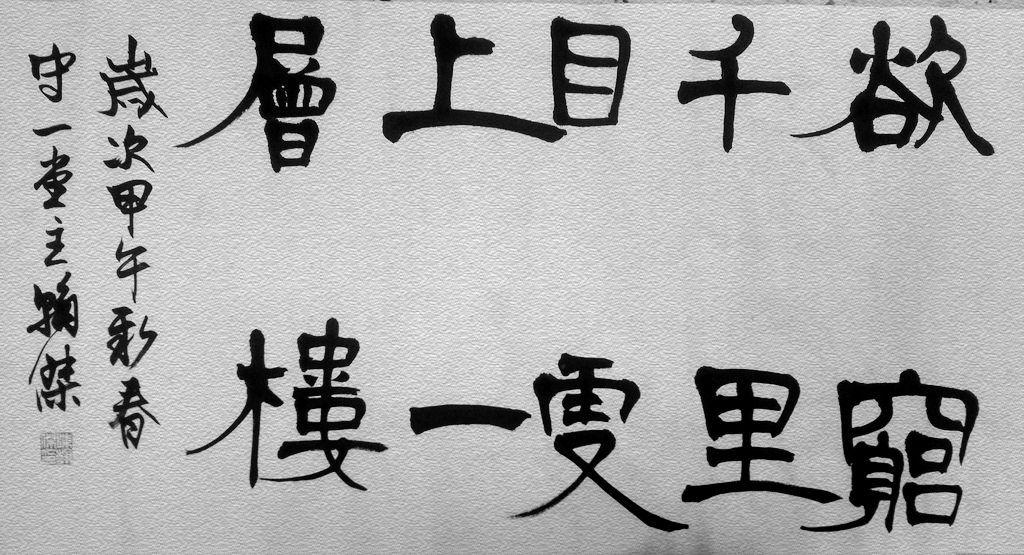 欲窮
千里
目更
上一
層樓
歲次甲午新春
守一堂主